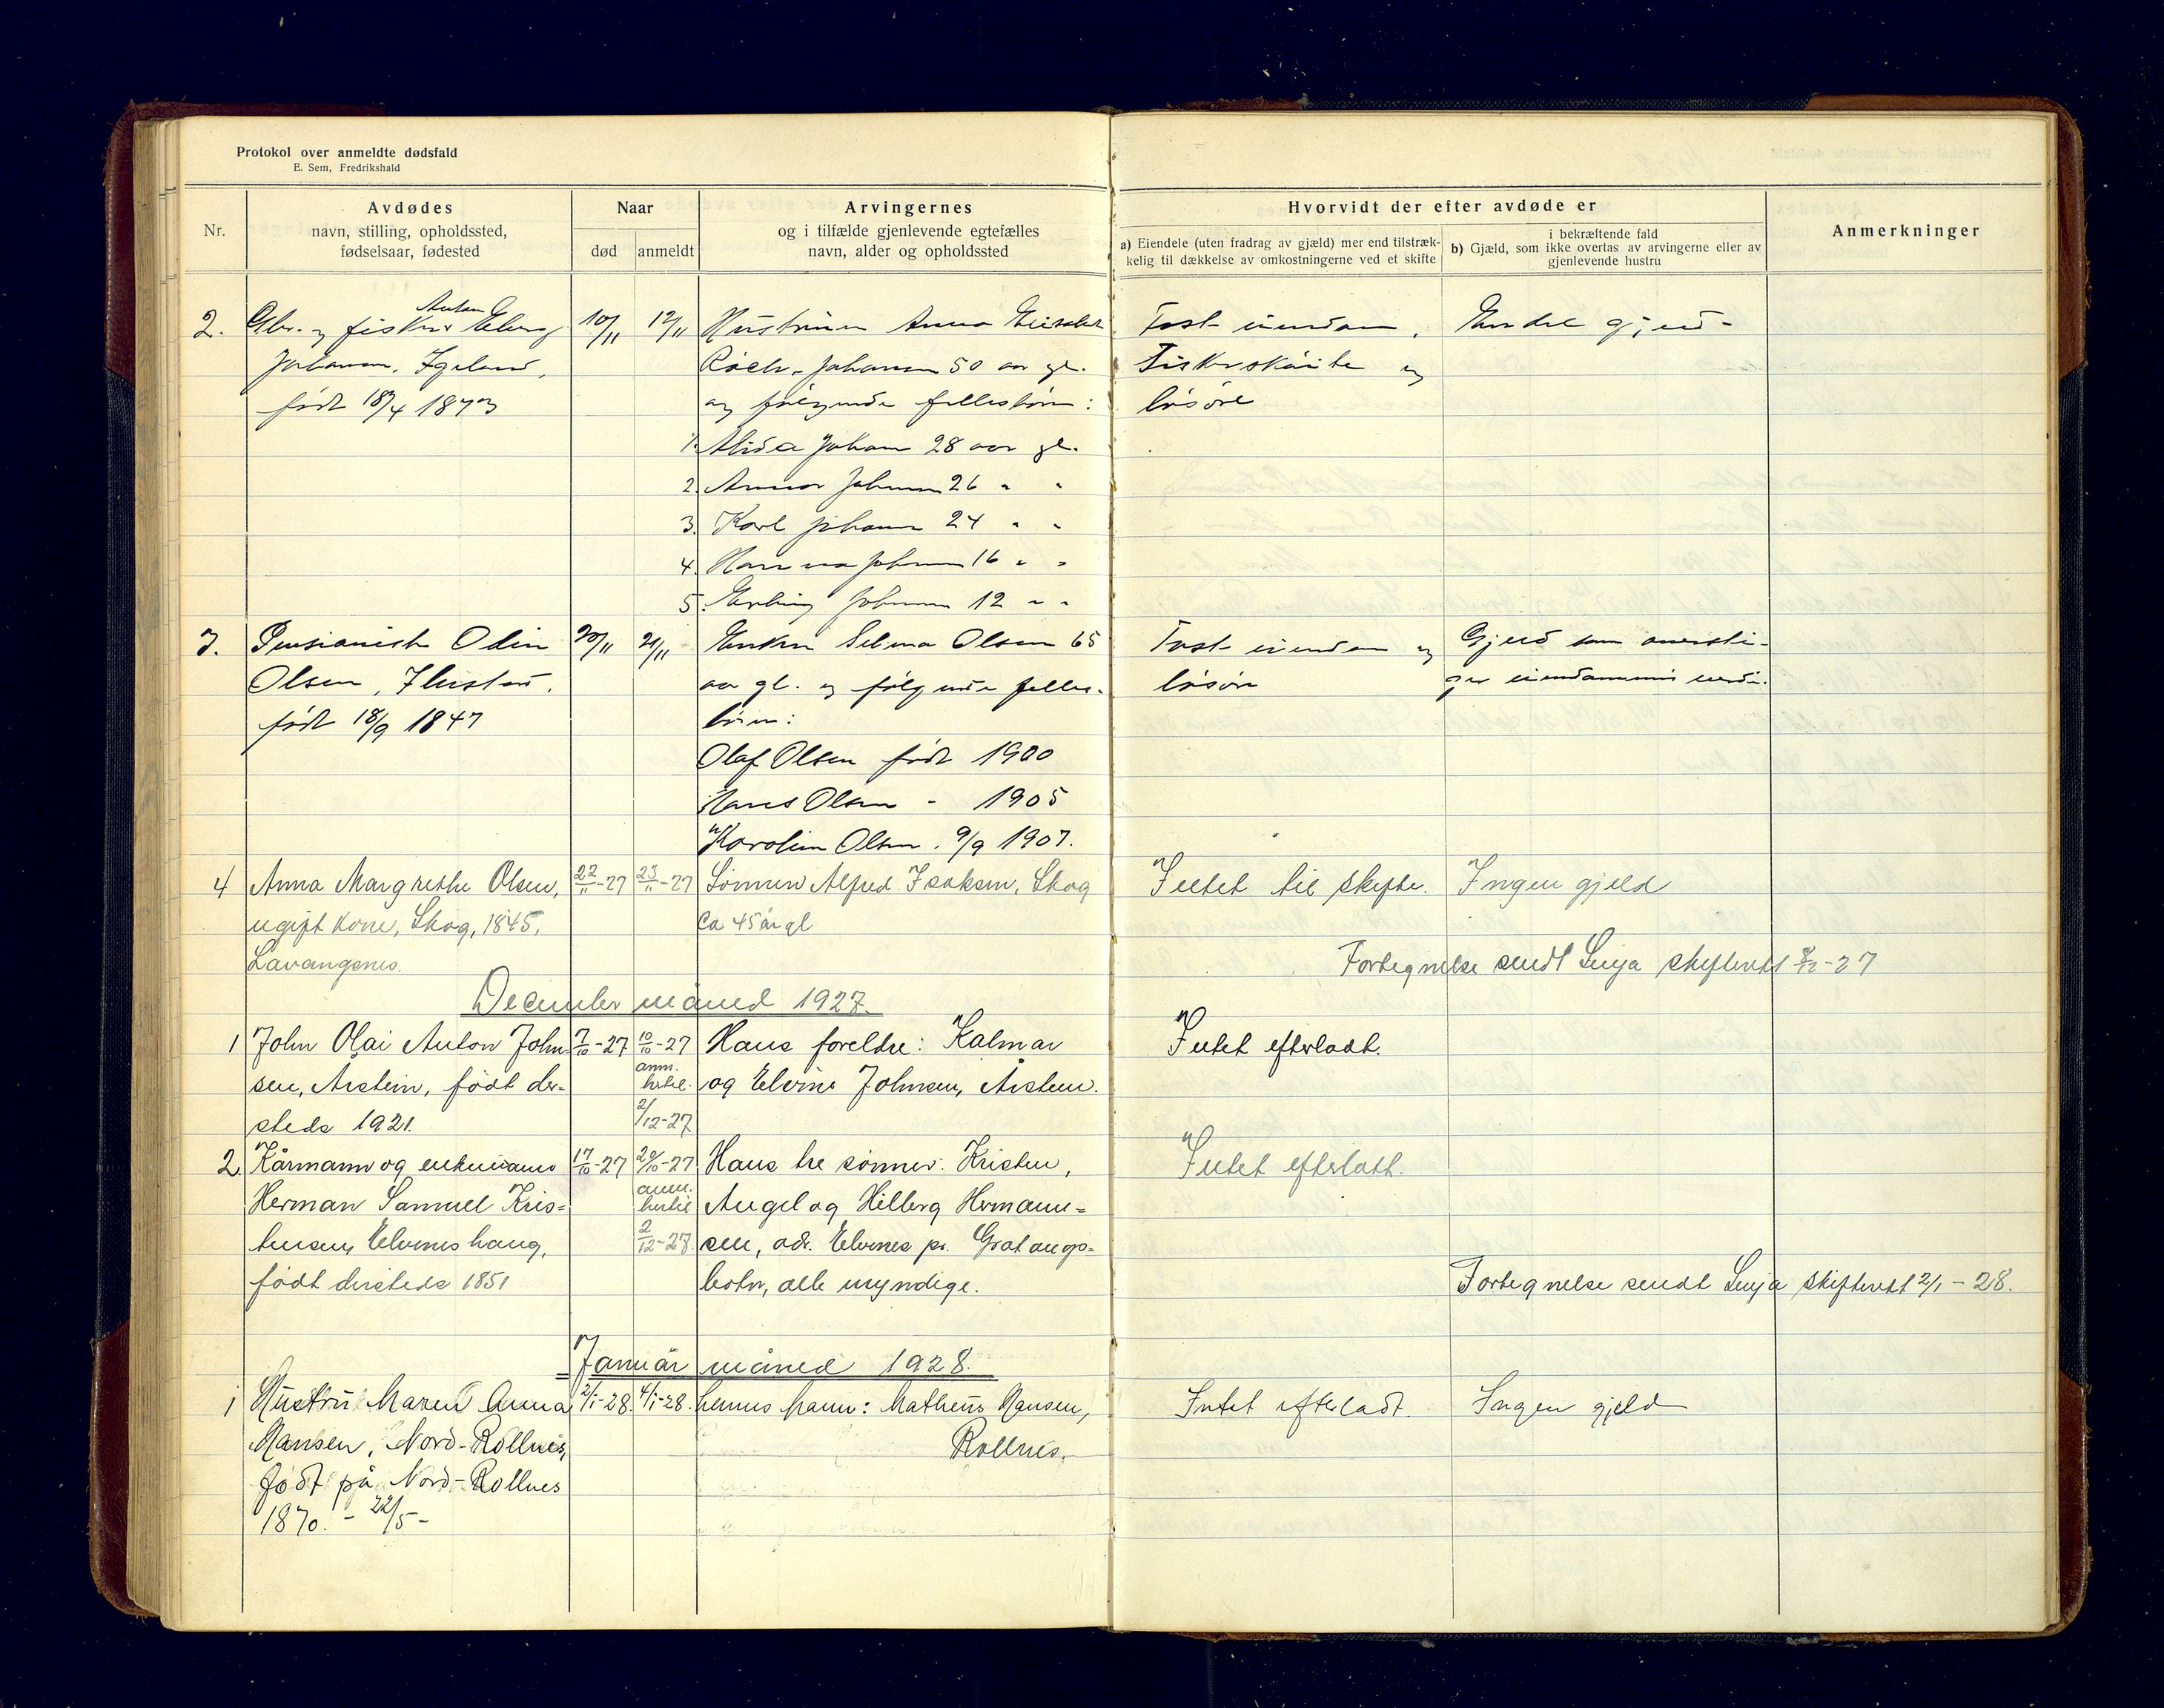 Protokol over anmeldte dødsfald
E. Sem, Fredrikshald
Nr.
Avdødes
navn, stilling, opholdssted,
fødselsaar, fødested
Naar
død
anmeldt
Arvingernes
og i tilfælde gjenlevende egtefælles
navn, alder og opholdssted
Hvorvidt der efter avdøde er
a) Eiendele (uten fradrag av gjæld) mer end tilstræk-
kelig til dækkelse av omkostningerne ved et skifte
i bekræftende fald
b) Gjæld, som ikke overtas av arvingerne eller av
gjenlevende hustru
Anmerkninger
2. Gbr. og fisker Anton
Johansen,
født 18/4 1873
10/11 12/11
Hustruen Anna
Johansen 50 aar gl.
og følgende fellesbørn:
1. Alida Johans 28 aar gl.
2. Johansen 26 " "
3. Karl Johansen 24 " "
4. Hanna Johansen 16 " "
5. Erling Johansen 12 " "
Fast eiendom,
Fiskerskøite og
løsøre
Endel gjeld
3. Pensionist Odin
Olsen,
født 18/9 1847
20/11 21/11
Enken Selma Olsen 65
aar gl. og følgende felles-
børn:
Olaf Olsen født 1900
Hans Olsen - 1905
Karolin Olsen. 9/9 1907.
Fast eiendom og
løsøre
Gjeld som oversti-
ger eiendommens verdi.
4 Anna Margrethe Olsen,
ugift kone, Skog, 1845,
Lavangsnes.
22/11-27 23/11-27
Sønnen Alfred Isaksen, Skog
ca 45 år gl
Intet til skifte. Ingen gjeld
Fortegnelse sendt Senja skifterett 2/12-27
December måned 1927.
1 John Olai Anton John-
sen, Arstein, født der-
steds 1921.
7/10-27 10/10-27
anm.
hertil
2/12-27
Hans foreldre: Kalmar
og Elvine Johnsen, Årstein.
Intet efterladt.
2. Kårmann og enkemann
Herman Samuel Kris-
tensen, Elveneshaug,
født dersteds 1851
17/10-27 20/10-27
anm.
hertil
2/12-27.
Hans tre sønner: Kristen,
Angel og Hilberg Hermann-
sen, adr. Elvenes pr. Gratangs-
botn, alle myndige.
Intet efterlatt.
Fortegnelse sendt Senja skifterett 2/1-28.
Januar måned 1928.
1 Hustru Maren Anna
Hansen, Nord-Rollnes,
født på Nord-Rollnes
1870. - 22/5 -
2/1-28. 4/1-28.
hennes mann: Matheus Hansen,
Rollnes.
Intet efterladt. Ingen gjeld